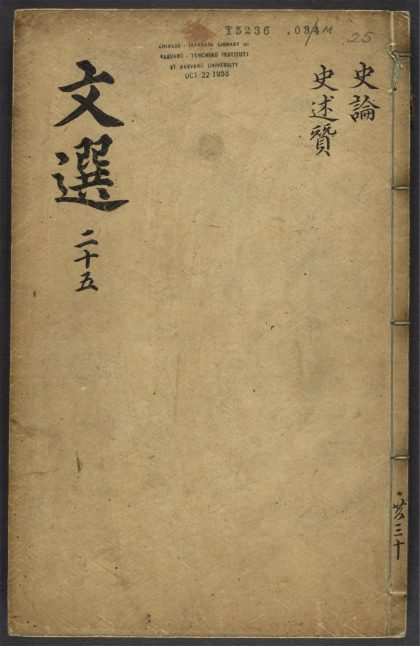 T5236 .034M 25
CHINESE - JAPANESE LIBRARY OF
HARVARD - YENCHING INSTITUTE
AT HARVARD UNIVERSITY
OCT 22 1953
史論
史述贊
文選
二十五
三十